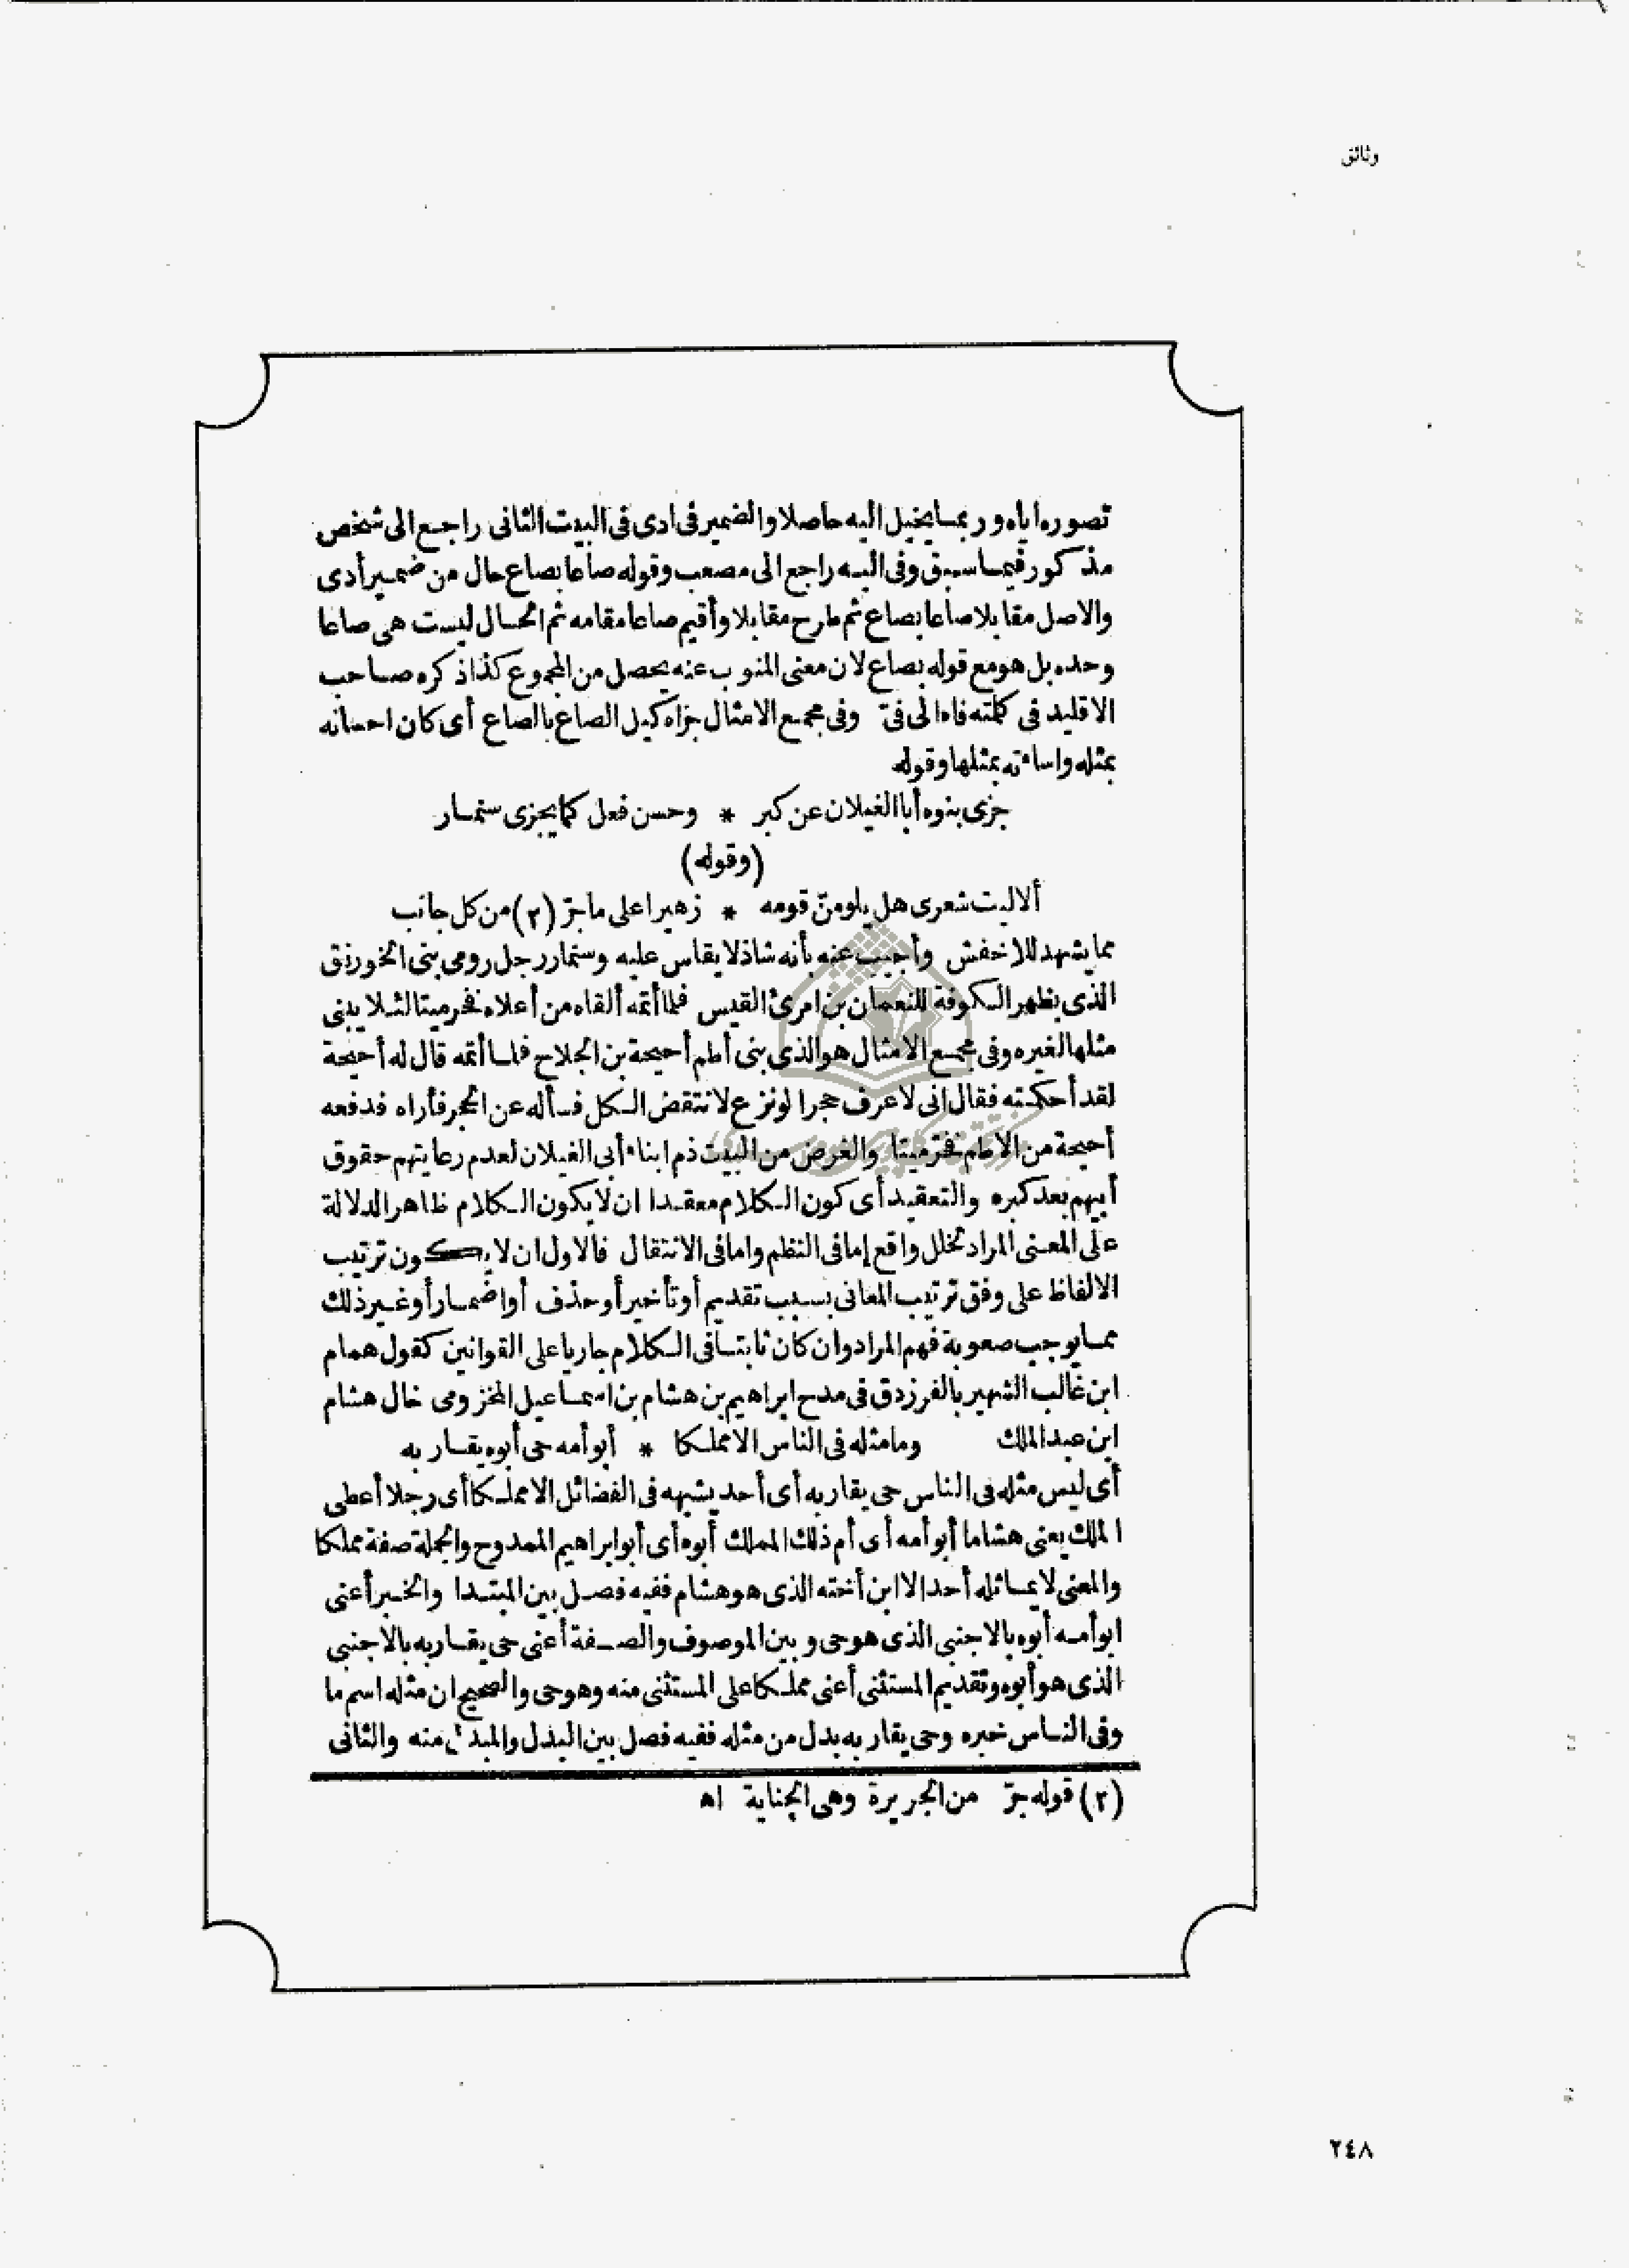 وثائق
تصوره اياه وربما يخيل اليه حاصلا والضمير فى ادى فى البيت الثانى راجع الى شخص
مذكور فيما سبق وفى اليه راجع الى مصعب وقوله صاعا بصاع حال من ضمير أدى
والاصل مقابلا صاعا بصاع ثم طرح مقابلا وأقيم صاعا مقامه ثم الحال ليست هى صاعا
وحده بل هو مع قوله بصاع لان معنى المنوب عنه يحصل من المجموع كذا ذكره صاحب
الاقليد فى كلته فاه الى فىّ وفى مجمع الامثال جزاه كيل الصاع بالصاع أى كان احسانه
بمثله واساءته بمثلها وقوله
جزى بنوه أبا الغيلان عن كبر * وحسن فعل كما يجزى سنمار
(وقوله)
ألا ليت شعرى هل يلومنّ قومه * زهيرا على ما جرّ (٢) من كل جانب
مما يشهد للاخفش وأجيب عنه بأنه شاذ لا يقاس عليه وسنمار رجل رومى بنى الخورنق
الذى بظهر الكوفة للنعمان بن امرئ القيس فلما أتمه ألقاه من أعلاه فخر ميتا لئلا يبنى
مثلها لغيره وفى مجمع الامثال هو الذى بنى أطم أحيحة بن الجلاح فلما أتمه قال له أحيحة
لقد أحكمته فقال انى لاعرف حجرا لو نزع لانتقض الكل فسأله عن الحجر فأراه فدفعه
أحيحة من الاطم فخرّ ميتا والغرض من البيت ذم ابناء أبى الغيلان لعدم رعايتهم حقوق
أبيهم بعد كبره والتعقيد أى كون الكلام معقدا ان لا يكون الكلام ظاهر الدلالة
على المعنى المراد لخلل واقع إما فى النظم واما فى الانتقال فالاول ان لا يكون ترتيب
الالفاظ على وفق ترتيب المعانى بسبب تقديم أو تأخير أو حذف أو اضمار أو غير ذلك
مما يوجب صعوبة فهم المراد وان كان ثابتا فى الكلام جاريا على القوانين كقول همام
ابن غالب الشهير بالفرزدق فى مدح ابراهيم بن هشام بن اسماعيل المخزومى خال هشام
ابن عبد الملك وما مثله فى الناس الا مملكا * أبو أمه حى أبوه يقاربه
أى ليس مثله فى الناس حى يقاربه أى أحد يشبهه فى الفضائل الا مملكا أى رجلا أعطى
الملك يعنى هشاما أبو أمه أى أم ذلك المملك أبوه أى أبو ابراهيم الممدوح والجملة صفة مملكا
والمعنى لا يماثله أحد الا ابن أخته الذى هو هشام ففيه فصل بين المبتدا والخبر أعنى
ابو أمه أبوه بالاجنبى الذى هو حى وبين الموصوف والصفة أعنى حى يقاربه بالاجنبى
الذى هو أبوه وتقديم المستثنى أعنى مملكا على المستثنى منه وهو حى والصحيح ان مثله اسم ما
وفى الناس خبره وحى يقاربه بدل من مثله ففيه فصل بين البدل والمبدل منه والثانى
(٢) قوله جرّ من الجريرة وهى الجناية اه
٢٤٨